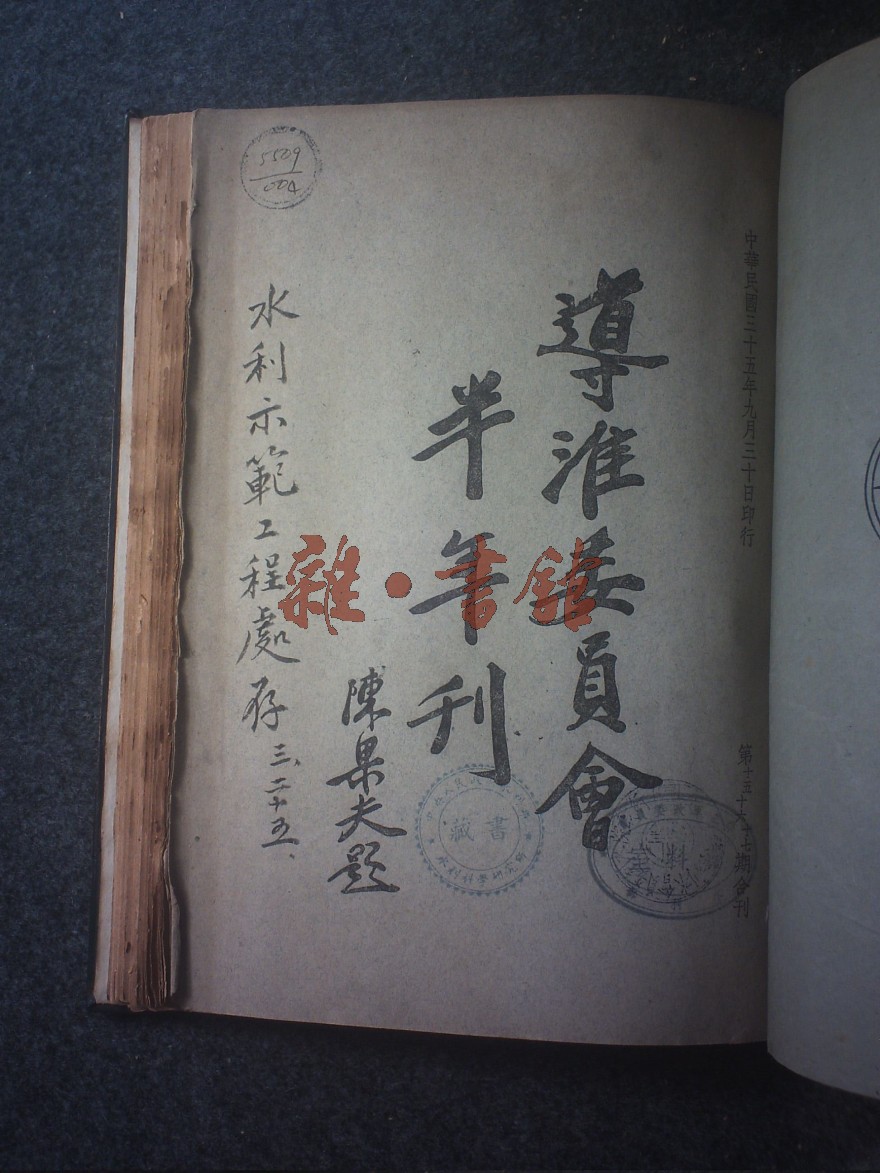 中華民國三十五年九月三十日印行
第十五十六十七期合刊
導淮委員會
半年刊
陳果夫題
水利示範工程處存 三、二十五、
5509
004
雜·書館
藏書
水利科學研究院